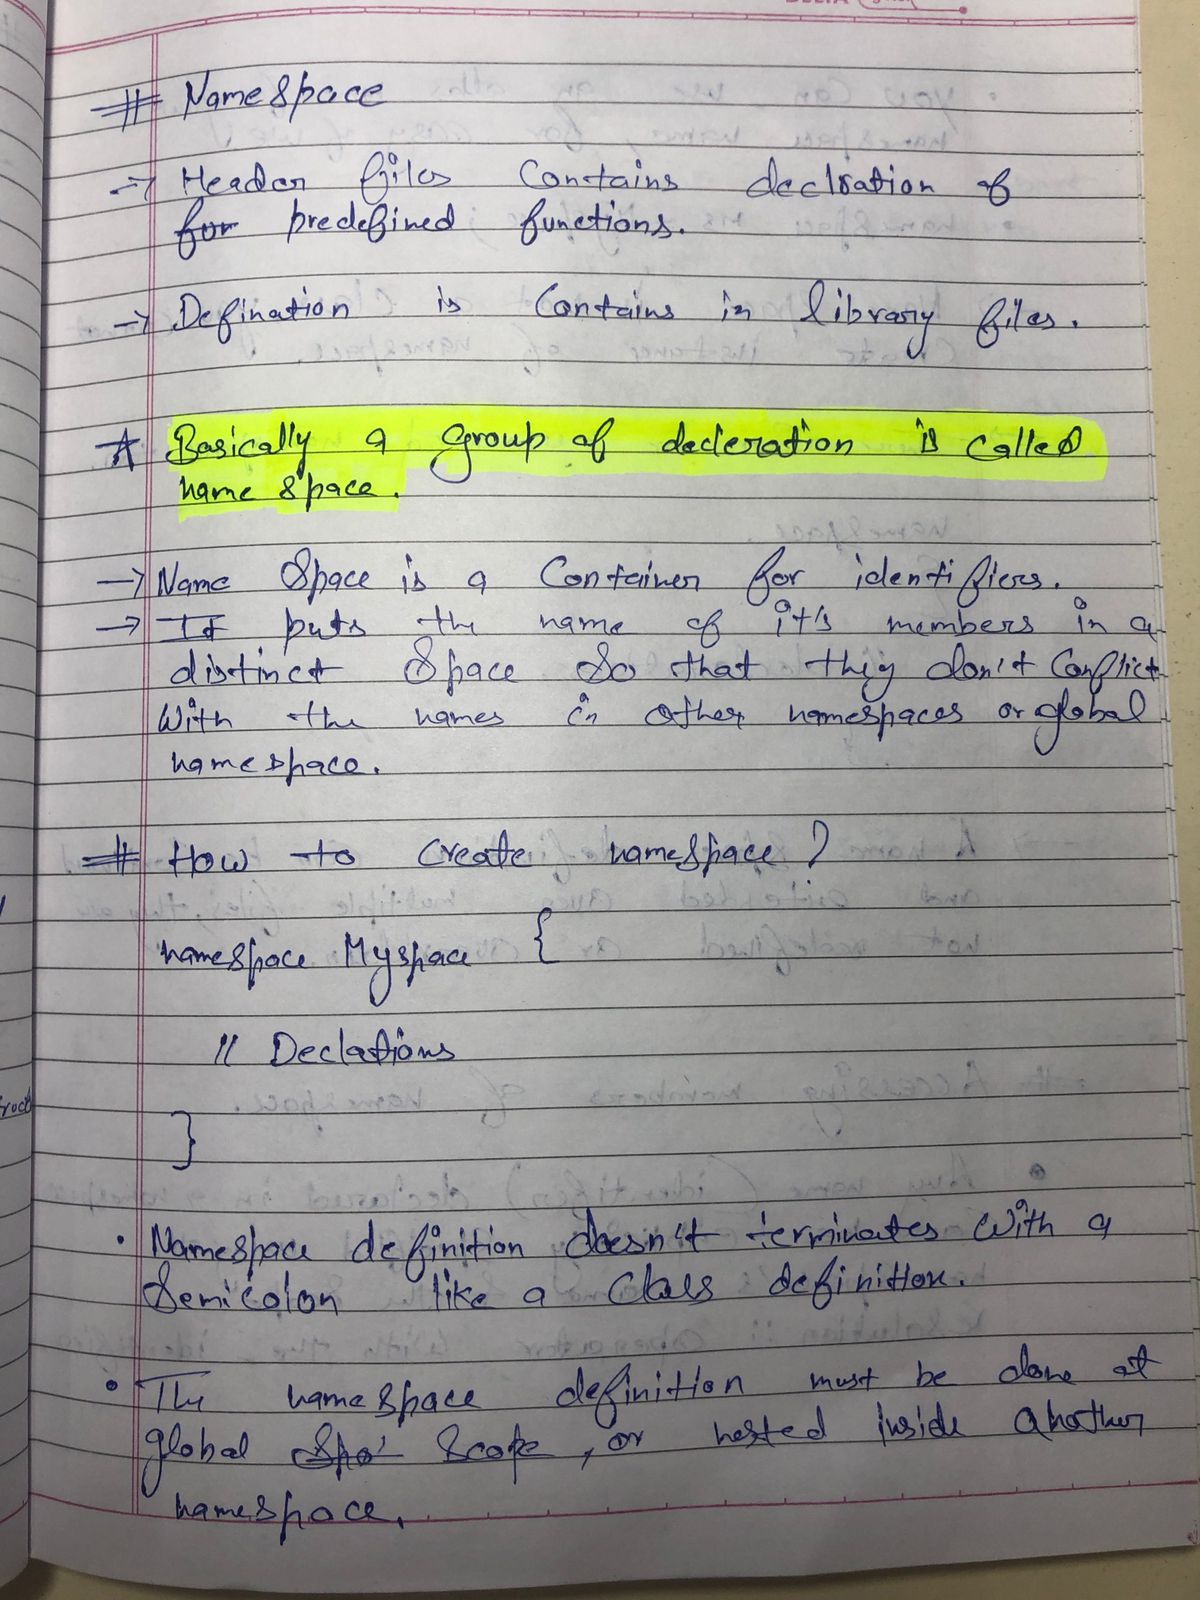 # Namespace
→ Header files contains declration of
for predefined functions.
→ Defination is contains in library files.
☆ Basically a group of decleration is called
name space.
→ Name Space is a Container for identifiers.
→ It puts the name of it's members in a
distinct Space So that they don't Conflict
with the names in other namespaces or global
namespace.
# How to Create namespace ?
namespace Myspace {
// Declations
}
• Namespace definition doesn't terminates with a
Semicolon like a Class definition.
• The namespace definition must be done at
global Spa Scope, or nested inside another
namespace.